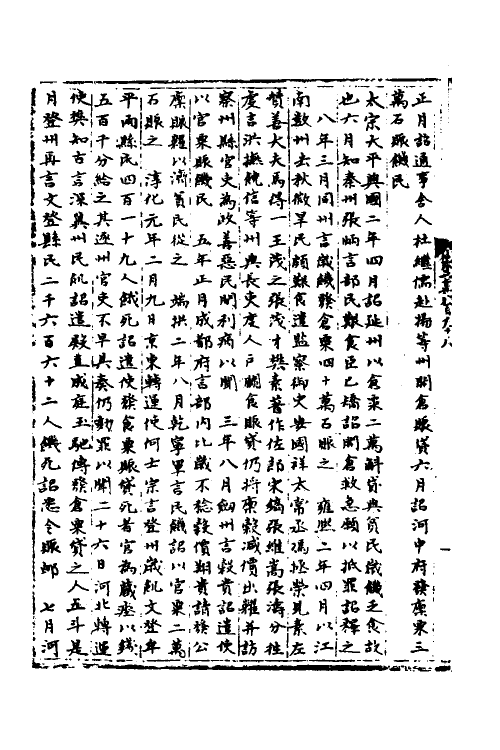 正月詔通事舍人杜繼儒赴揚等州開倉賑貸六月詔河中府發廩粟三
萬石賑饑民
太宗太平興國二年四月詔延州以倉粟二萬斛貸與貧民歲饑乏食故
也六月知秦州張炳言部民艱食臣已矯詔開倉救急願以抵罪詔釋之
八年三月同州言歲饑發倉粟四十萬石賑之 雍熙二年四月以江
南數州去秋微旱民頗艱食遣監察御史安國祥太常丞馮拯榮見素左
贊善大夫馬得一王茂之張茂才樊素著作佐郎宋鎬張維嵩張濤分往
虔言洪撫饒信等州與長吏度人戶闕食賑貸仍將廩穀減價出糶并訪
察州縣官吏為政善惡民間利病以聞 三年八月劍州言穀貴詔遣使
以官粟賑饑民 五年正月成都府言部內比歲不稔穀價翔貴請發公
廩賑糶以濟貧民從之 端拱二年八月乾寧軍言民饑詔以官粟二萬
石賑之 淳化元年二月九日京東轉運使何士宗言登州歲飢文登牟
平兩縣民四百一十九人餓死詔遣使發倉粟賑貸死者官為藏瘞以錢
五百千分給之其逐州官吏不早具奏仍劾罪以聞二十六日河北轉運
使樊知古言深冀州民飢詔遣殿直成庭玉馳傳發倉粟貸之人五斗是
月登州再言文登縣民二千六百六十二人饑死詔悉令賑卹 七月河